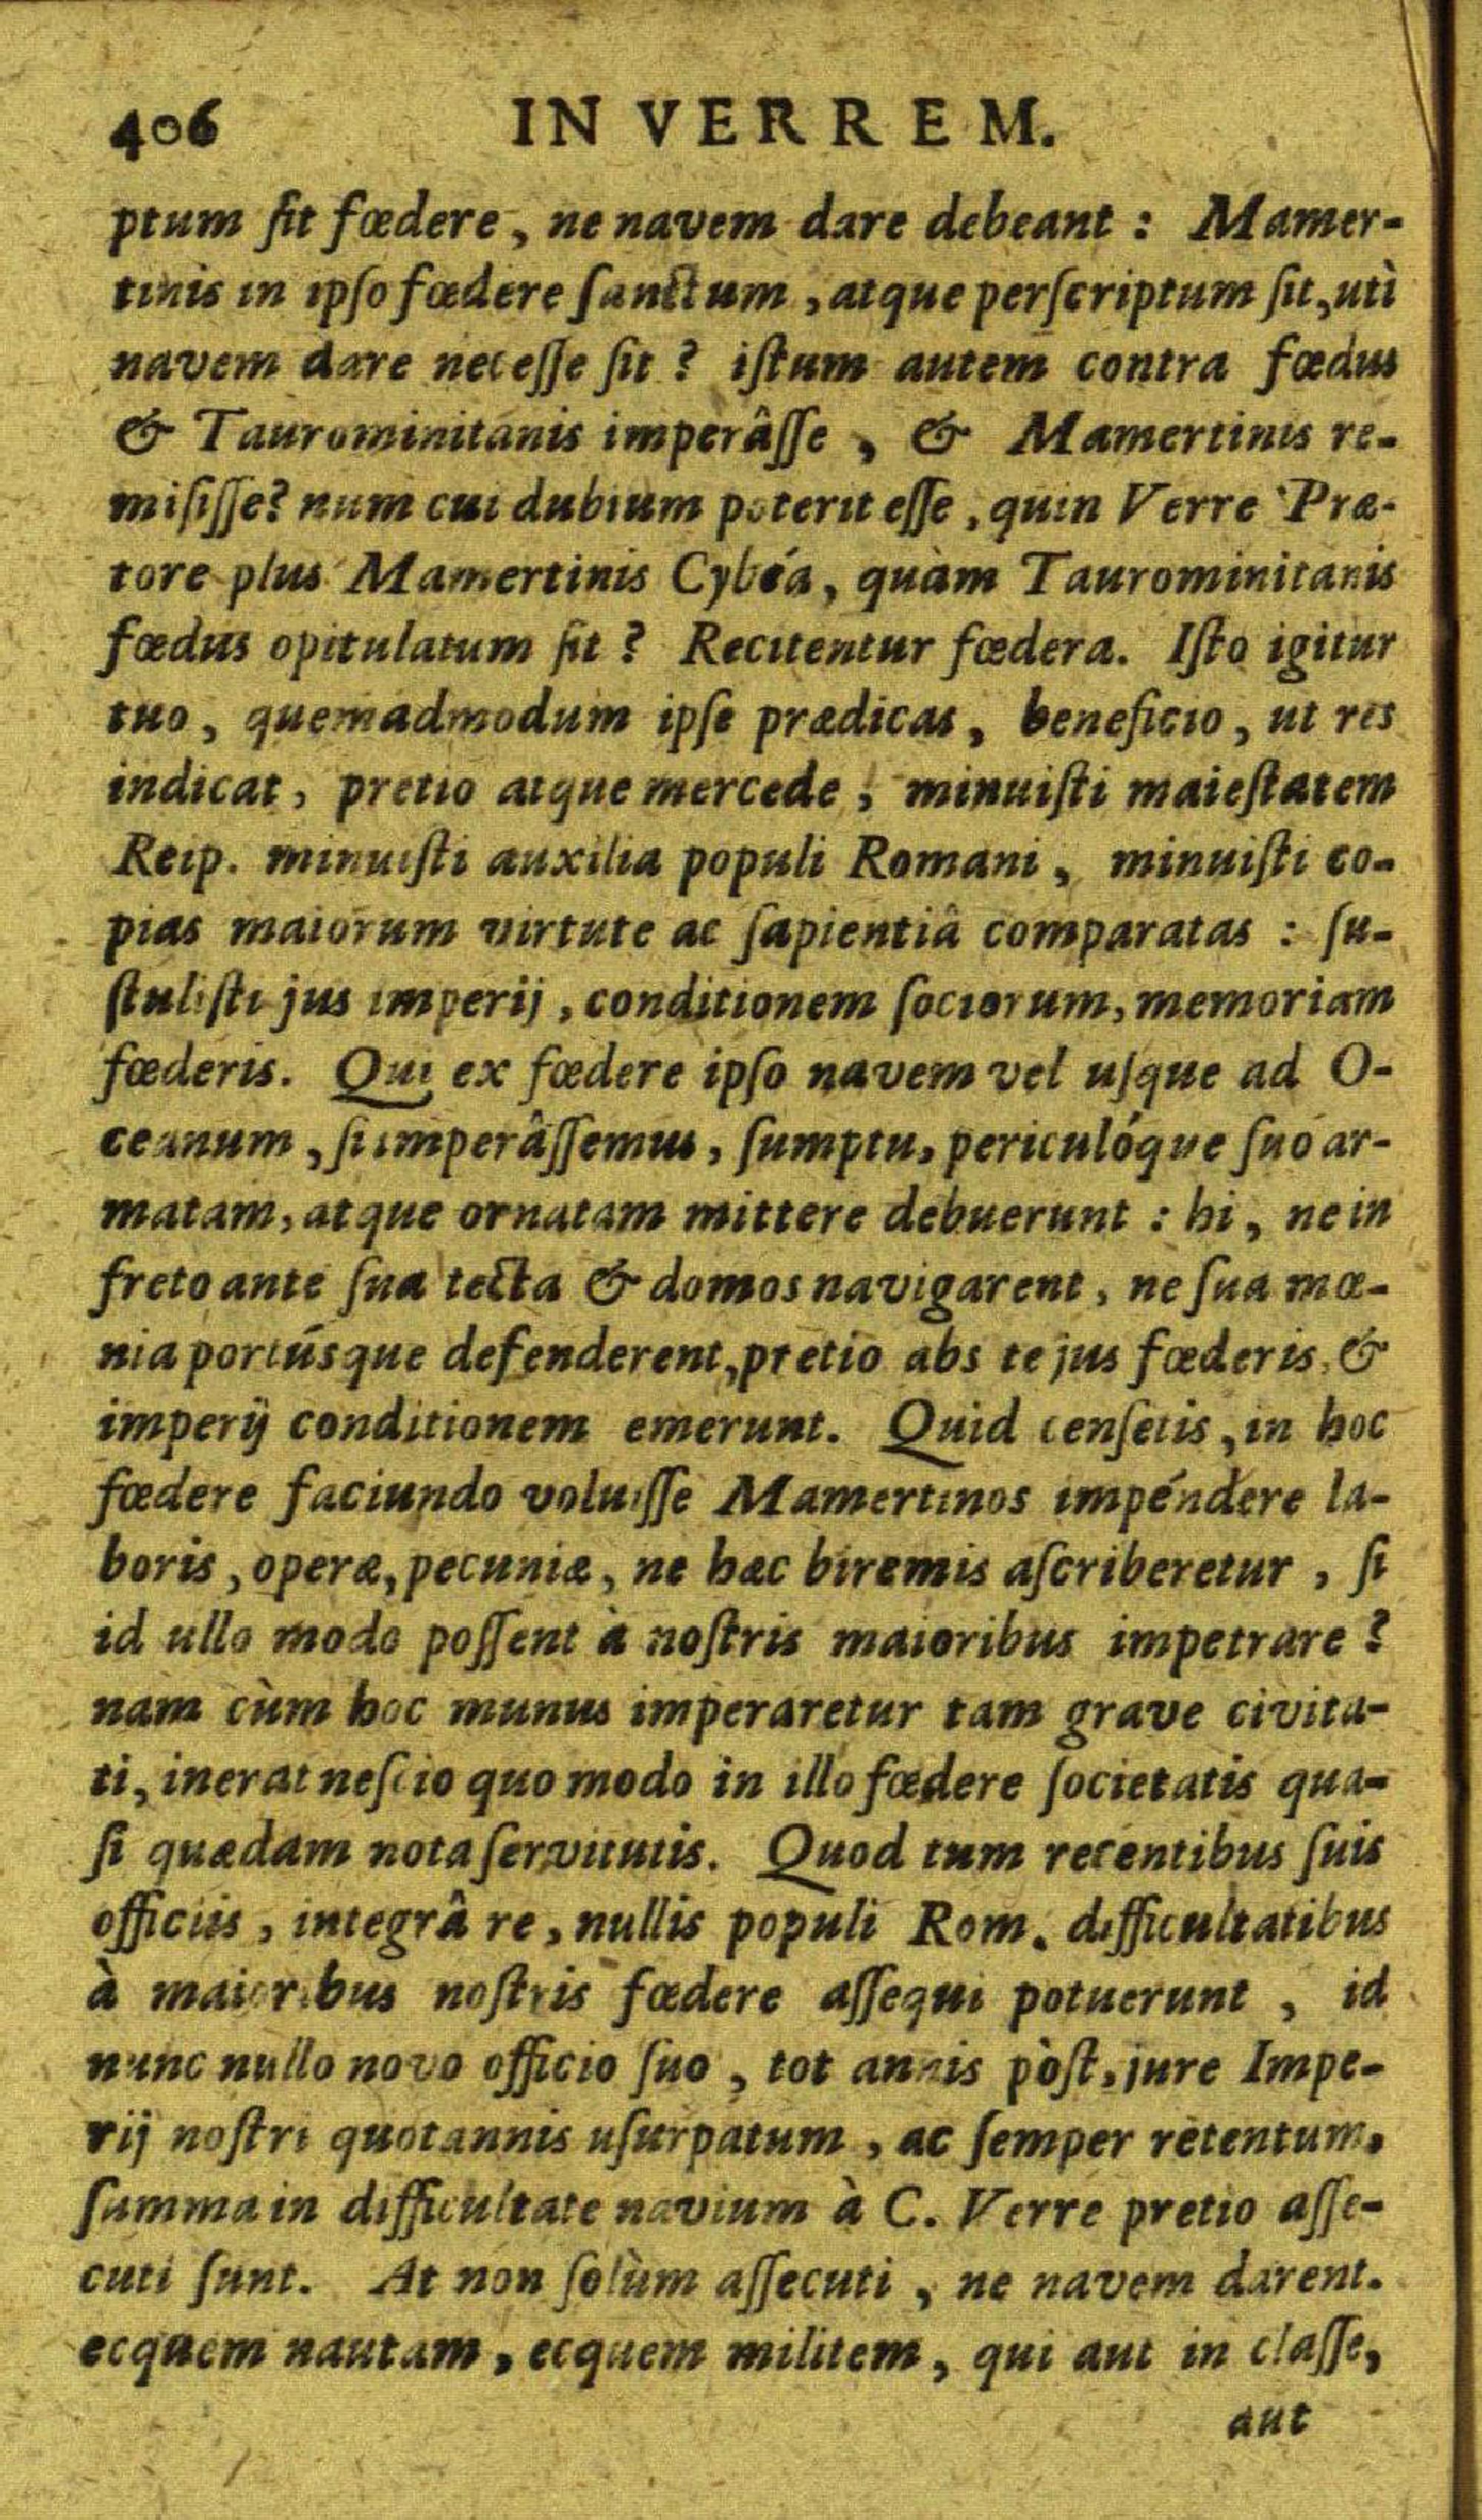 406 IN VERREM.
ptum ſit fœdere, ne navem dare debeant : Mamer-
tinis in ipſo fœdere ſanctum, atque perſcriptum ſit, utì
navem dare necesſe ſit ? iſtum autem contra fœdus
& Taurominitanis imperâſſe, & Mamertinis re-
miſiſſe? num cui dubium poterit eſſe, quin Verre Præ-
tore plus Mamertinis Cybéa, quàm Taurominitanis
fœdus opitulatum ſit ? Recitentur fœdera. Iſto igitur
tuo, quemadmodum ipſe prædicas, beneficio, ut res
indicat, pretio atque mercede, minuiſti maieſtatem
Reip. minuiſti auxilia populi Romani, minuiſti co-
pias maiorum virtute ac ſapientiâ comparatas : ſu-
ſtuliſti jus imperij, conditionem ſociorum, memoriam
fœderis. Qui ex fœdere ipſo navem vel uſque ad O-
ceanum, ſi imperâſſemus, ſumptu, periculóque ſuo ar-
matam, atque ornatam mittere debuerunt : hi, ne in
freto ante ſua tecta & domos navigarent, ne ſua mœ-
nia portúsque defenderent, pretio abs te jus fœderis, &
imperij conditionem emerunt. Quid cenſetis, in hoc
fœdere faciundo voluiſſe Mamertinos impéndere la-
boris, operæ, pecuniæ, ne hæc biremis aſcriberetur, ſi
id ullo modo poſſent à noſtris maioribus impetrare ?
nam cùm hoc munus imperaretur tam grave civita-
ti, inerat neſcio quo modo in illo fœdere ſocietatis qua-
ſi quædam nota ſervitutis. Quod tum recentibus ſuis
officiis, integrâ re, nullis populi Rom. difficultatibus
à maioribus noſtris fœdere aſſequi potuerunt, id
nunc nullo novo officio ſuo, tot annis pòſt, jure Impe-
rij noſtri quotannis uſurpatum, ac ſemper retentum,
ſumma in difficultate navium à C. Verre pretio aſſe-
cuti ſunt. At non ſolùm aſſecuti, ne navem darent.
ecquem nautam, ecquem militem, qui aut in claſſe,
aut